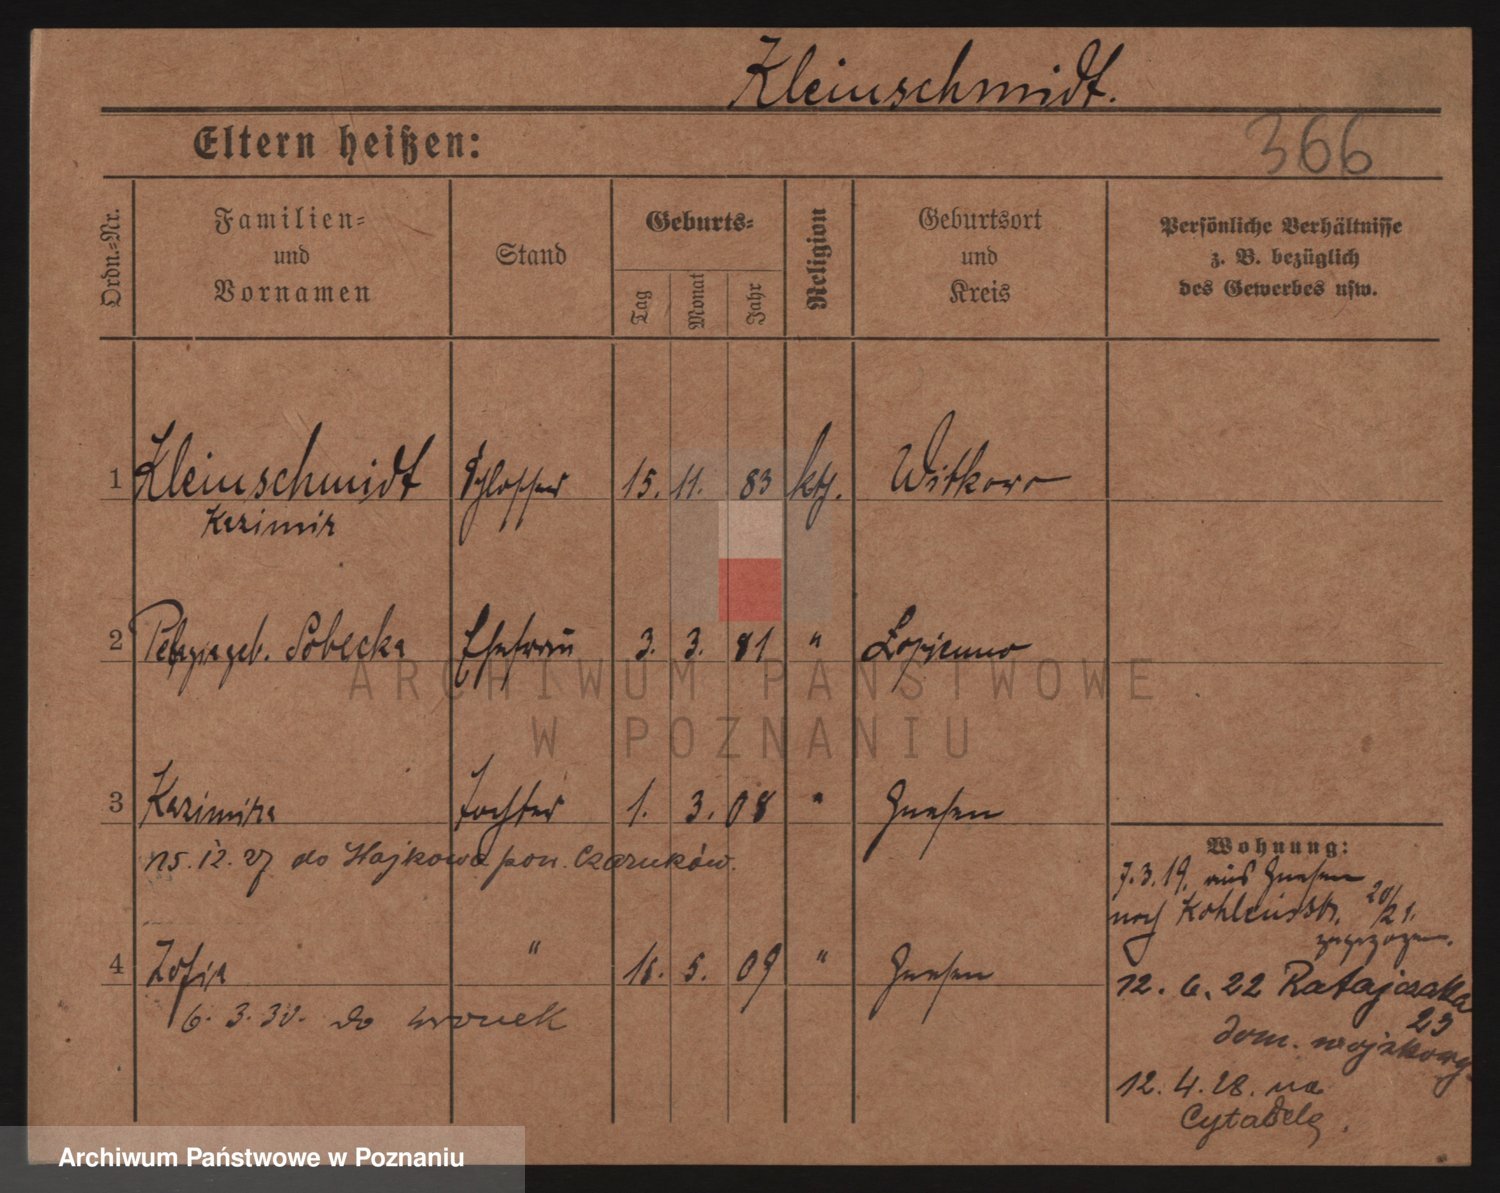 Kleinschmidt.
Eltern heißen:
366
Ordn.-Nr.
Familien-
und
Vornamen
Stand
Geburts-
Tag
Monat
Jahr
Religion
Geburtsort
und
Kreis
Persönliche Verhältnisse
z. B. bezüglich
des Gewerbes usw.
1 Kleinschmidt Schlosser 15. 11. 83 kth. Witkowo
Kazimir
2 Pelagia geb. Sobecka Ehefrau 3. 3. 81 " Lopienno
ARCHIWUM PAŃSTWOWE
W POZNANIU
3 Kazimira Tochter 1. 3. 08 " Gnesen
15. 12. 27 do pow. Czarnków.
4 Zofia " 16. 5. 09 " Gnesen
6. 3. 30. do Wronek
Wohnung:
7.3.19. aus Gnesen
nach Kohleisstr. 20/21.
zugezogen.
12. 6. 22 Ratajczaka
23
dom. wojskowy
12. 4. 28. na
Cytadelę.
Archiwum Państwowe w Poznaniu